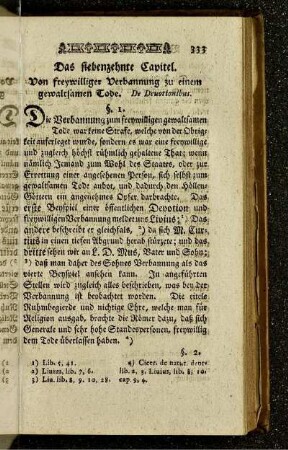 333
Das siebenzehnte Capitel.
Von freywilliger Verbannung zu einem
gewaltsamen Tode. De Deuotionibus.
§. 1.
Die Verbannung zum freywilligen gewaltsamen
Tode war keine Strafe, welche von der Obrig-
keit auferleget wurde, sondern es war eine freywillige
und zugleich höchst rühmlich gehaltene That; wenn
nämlich Jemand zum Wohl des Staats, oder zur
Errettung einer angesehenen Person, sich selbst zum
gewaltsamen Tode anbot, und dadurch den Höllen-
Göttern ein angenehmes Opfer darbrachte. Das
erste Beyspiel einer öffentlichen Devotion oder
freywilligen Verbannung meldet uns Livius; ¹) Das
andere beschreibt er gleichfals, ²) da sich M. Cur-
tius in einen tiefen Abgrund herab stürzte; und das
dritte sehen wir an P. D. Mus, Vater und Sohn;
³) daß man daher des Sohnes Verbannung als das
vierte Beyspiel ansehen kann. In angeführten
Stellen wird zugleich alles beschrieben, was bey der
Verbannung ist beobachtet worden. Die eitele
Ruhmbegierde und nichtige Ehre, welche man für
Religion ausgab, brachte die Römer dazu, daß sich
Generale und sehr hohe Standespersonen, freywillig
dem Tode überlassen haben. ⁴)
§. 2.
1) Lib. 5, 41.
2) Liuius, lib. 7, 6.
3) Liu. lib. 8, 9. 10. 28.
4) Cicer. de natur. deor.
lib. 2, 3. Liuius, lib. 8; 10.
cap. 9, 4.